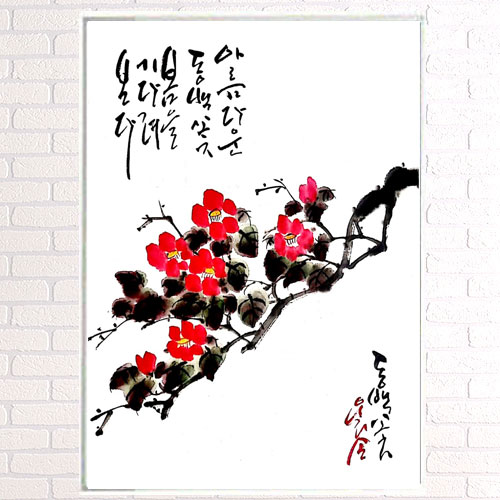 아름다운
동백꽃
봄을
기다려
본다
동백꽃